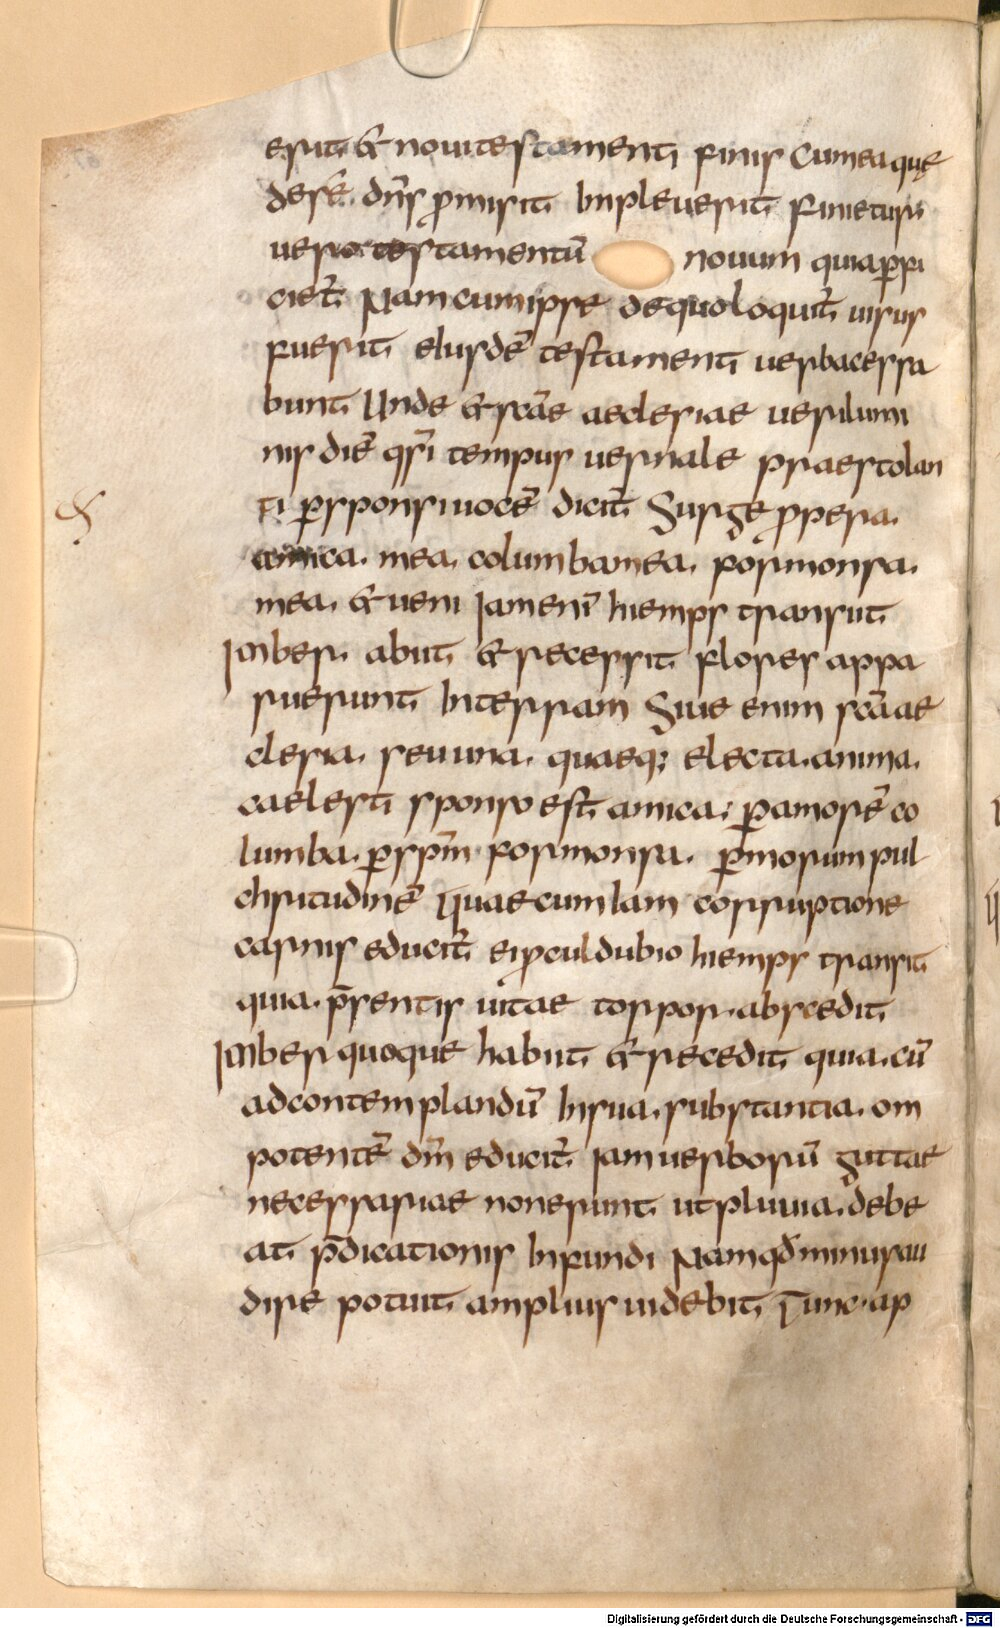 erit & noui testamenti finis Cum ea quę
de se dn̄s p̄misit Impleuerit finietur
uero testamentū nouum quia ꝑfi
ciet̄ Nam cum ipse de quo loquit̄ uisus
fuerit eiusdē testamenti uerba cessa
bunt Unde & scāe aeclesiae ueri lumi
nis diē qsi tempus uernale praestolan
ti ꝑ sponsi uocē dicit̄ Surge ꝓpera.
amica. mea. columba mea. formonsa.
mea. & ueni Iam enī hiemps transiit
Imber. abiit & recessit flores appa
ruerunt In terram Siue enim scā ae
clesia. seu una. quaeq; electa. anima.
caelesti sponso est amica; ꝑ amorē co
lumba. ꝑ sp̄m formonsa. ꝑ morum pul
chritudinē Quae cum Iam corruptione
carnis educit̄ ei ꝓcul dubio hiemps transit
quia. p̄sentis uitae torpor. abscedit
Imber quoque habiit & recedit quia. cū
ad contemplandū In sua. substantia. om
potentē dm̄ educit̄ iam uerborū guttae
necessariae non erunt ut pluuia. debe
at p̄dicationis Infundi Nam qd̄ minus au
dire potuit amplius uidebit Tunc. ap
Digitalisierung gefördert durch die Deutsche Forschungsgemeinschaft - DFG